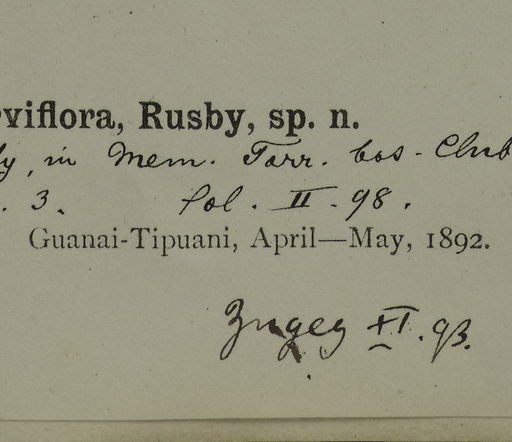 rviflora, Rusby, sp. n.
y, in Mem. Torr. bos. Club
. 3. Pol. II. 98.
Guanai-Tipuani, April—May, 1892.
XI. 93.